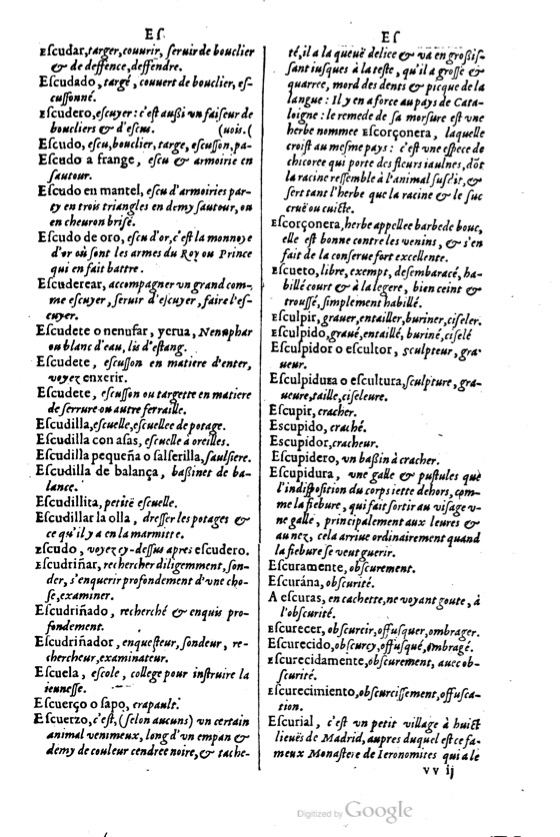 Eſ
Eſcudar, targer, couurir, ſeruir de bouclier
& de deffence, deffendre.
Eſcudado, targé, couuert de bouclier, eſ-
cuſſonné.
Eſcudero, eſcuyer: c'eſt auſſi vn faiſeur de
boucliers & d'eſcus. (uois. (
Eſcudo, eſcu, bouclier, targe, eſcuſſon, pa-
Eſcudo a frange, eſcu & armoirie en
ſautour.
Eſcudo en mantel, eſcu d'armoiries par-
ty en trois triangles en demy ſautour, ou
en cheuron briſé.
Eſcudo de oro, eſcu d'or, c'eſt la monnoye
d'or où ſont les armes du Roy ou Prince
qui en fait battre.
Eſcuderear, accompagner vn grand com-
me eſcuyer, ſeruir d'eſcuyer, faire l'eſ-
cuyer.
Eſcudete o nenufar, yerua, Nenuphar
ou blanc d'eau, lis d'eſtang.
Eſcudete, eſcuſſon en matiere d'enter,
voyez enxerir.
Eſcudete, eſcuſſon ou targette en matiere
de ſerrure ou autre ferraille.
Eſcudilla, eſcuelle, eſcuellee de potage.
Eſcudilla con aſas, eſcuelle à oreilles.
Eſcudilla pequeña o ſalſerilla, ſaulſiere.
Eſcudilla de balança, baſſinet de ba-
lance.
Eſcudillita, petite eſcuelle.
Eſcudillar la olla, dreſſer les potages &
ce qu'il y a en la marmitte.
Eſcudo, voyez cy-deſſus apres eſcudero.
Eſcudriñar, rechercher diligemment, ſon-
der, s'enquerir profondement d'vne cho-
ſe, examiner.
Eſcudriñado, recherché & enquis pro-
fondement.
Eſcudriñador, enqueſteur, ſondeur, re-
chercheur, examinateur.
Eſcuela, eſcole, college pour inſtruire la
ieuneſſe.
Eſcuerço o ſapo, crapault.
Eſcuerzo, c'eſt, (ſelon aucuns) vn certain
animal venimeux, long d'vn empan &
demy de couleur cendree noire, & tache-
Eſ
té, il a la queuë delice & va en groſſiſ-
ſant iuſques à la teſte, qu'il a groſſe &
quarree, mord des dents & picque de la
langue: Il y en a force au pays de Cata-
loigne: le remede de ſa morſure eſt vne
herbe nommee Eſcorçonera, laquelle
croiſt au meſme pays: c'eſt vne eſpece de
chicoree qui porte des fleurs iaulnes, dõt
la racine reſſemble à l'animal ſuſdit, &
ſert tant l'herbe que la racine & le ſuc
cruë ou cuitte.
Eſcorçonera, herbe appellee barbe de bouc,
elle eſt bonne contre les venins, & s'en
fait de la conſerue fort excellente.
Eſcueto, libre, exempt, deſembaracé, ha-
billé court & à la legere, bien ceint &
trouſſé, ſimplement habillé.
Eſculpir, grauer, entailler, buriner, ciſeler.
Eſculpido, graué, entaillé, buriné, ciſelé
Eſculpidor o eſcultor, ſculpteur, gra-
ueur.
Eſculpidura o eſcultura, ſculpture, gra-
ueure, taille, ciſeleure.
Eſcupir, cracher.
Escupido, craché.
Escupidor, cracheur.
Eſcupidero, vn baſſin à cracher.
Eſcupidura, vne galle & puſtules que
l'indiſpoſition du corps iette dehors, com-
me la fiebure, qui fait ſortir au viſage v-
ne galle, principalement aux leures &
au nez, cela arriue ordinairement quand
la fiebure ſe veut guerir.
Eſcuramente, obſcurement.
Eſcurána, obſcurité.
A eſcuras, en cachette, ne voyant goute, à
l'obſcurité.
Eſcurecer, obſcurcir, offuſquer, ombrager.
Eſcurecido, obſcurcy, offuſqué, õbragé.
Eſcurecidamente, obſcurement, auec ob-
ſcurité.
Eſcurecimiento, obſcurciſſement, offuſca-
tion.
Eſcurial, c'eſt vn petit village à huict
lieuës de Madrid, aupres duquel eſt ce fa-
meux Monaſtere de Ieronomites qui a le
vv ij
Digitized by Google